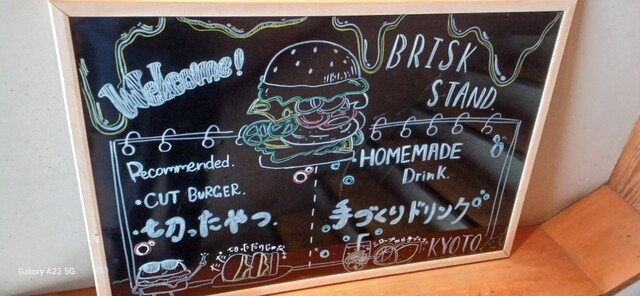 Welcome!
BRISK
STAND.
Recommended.
・CUT BURGER.
・切ったやつ
HOMEMADE
Drink.
手づくりドリンク
KYOTO
Galaxy A22 5G